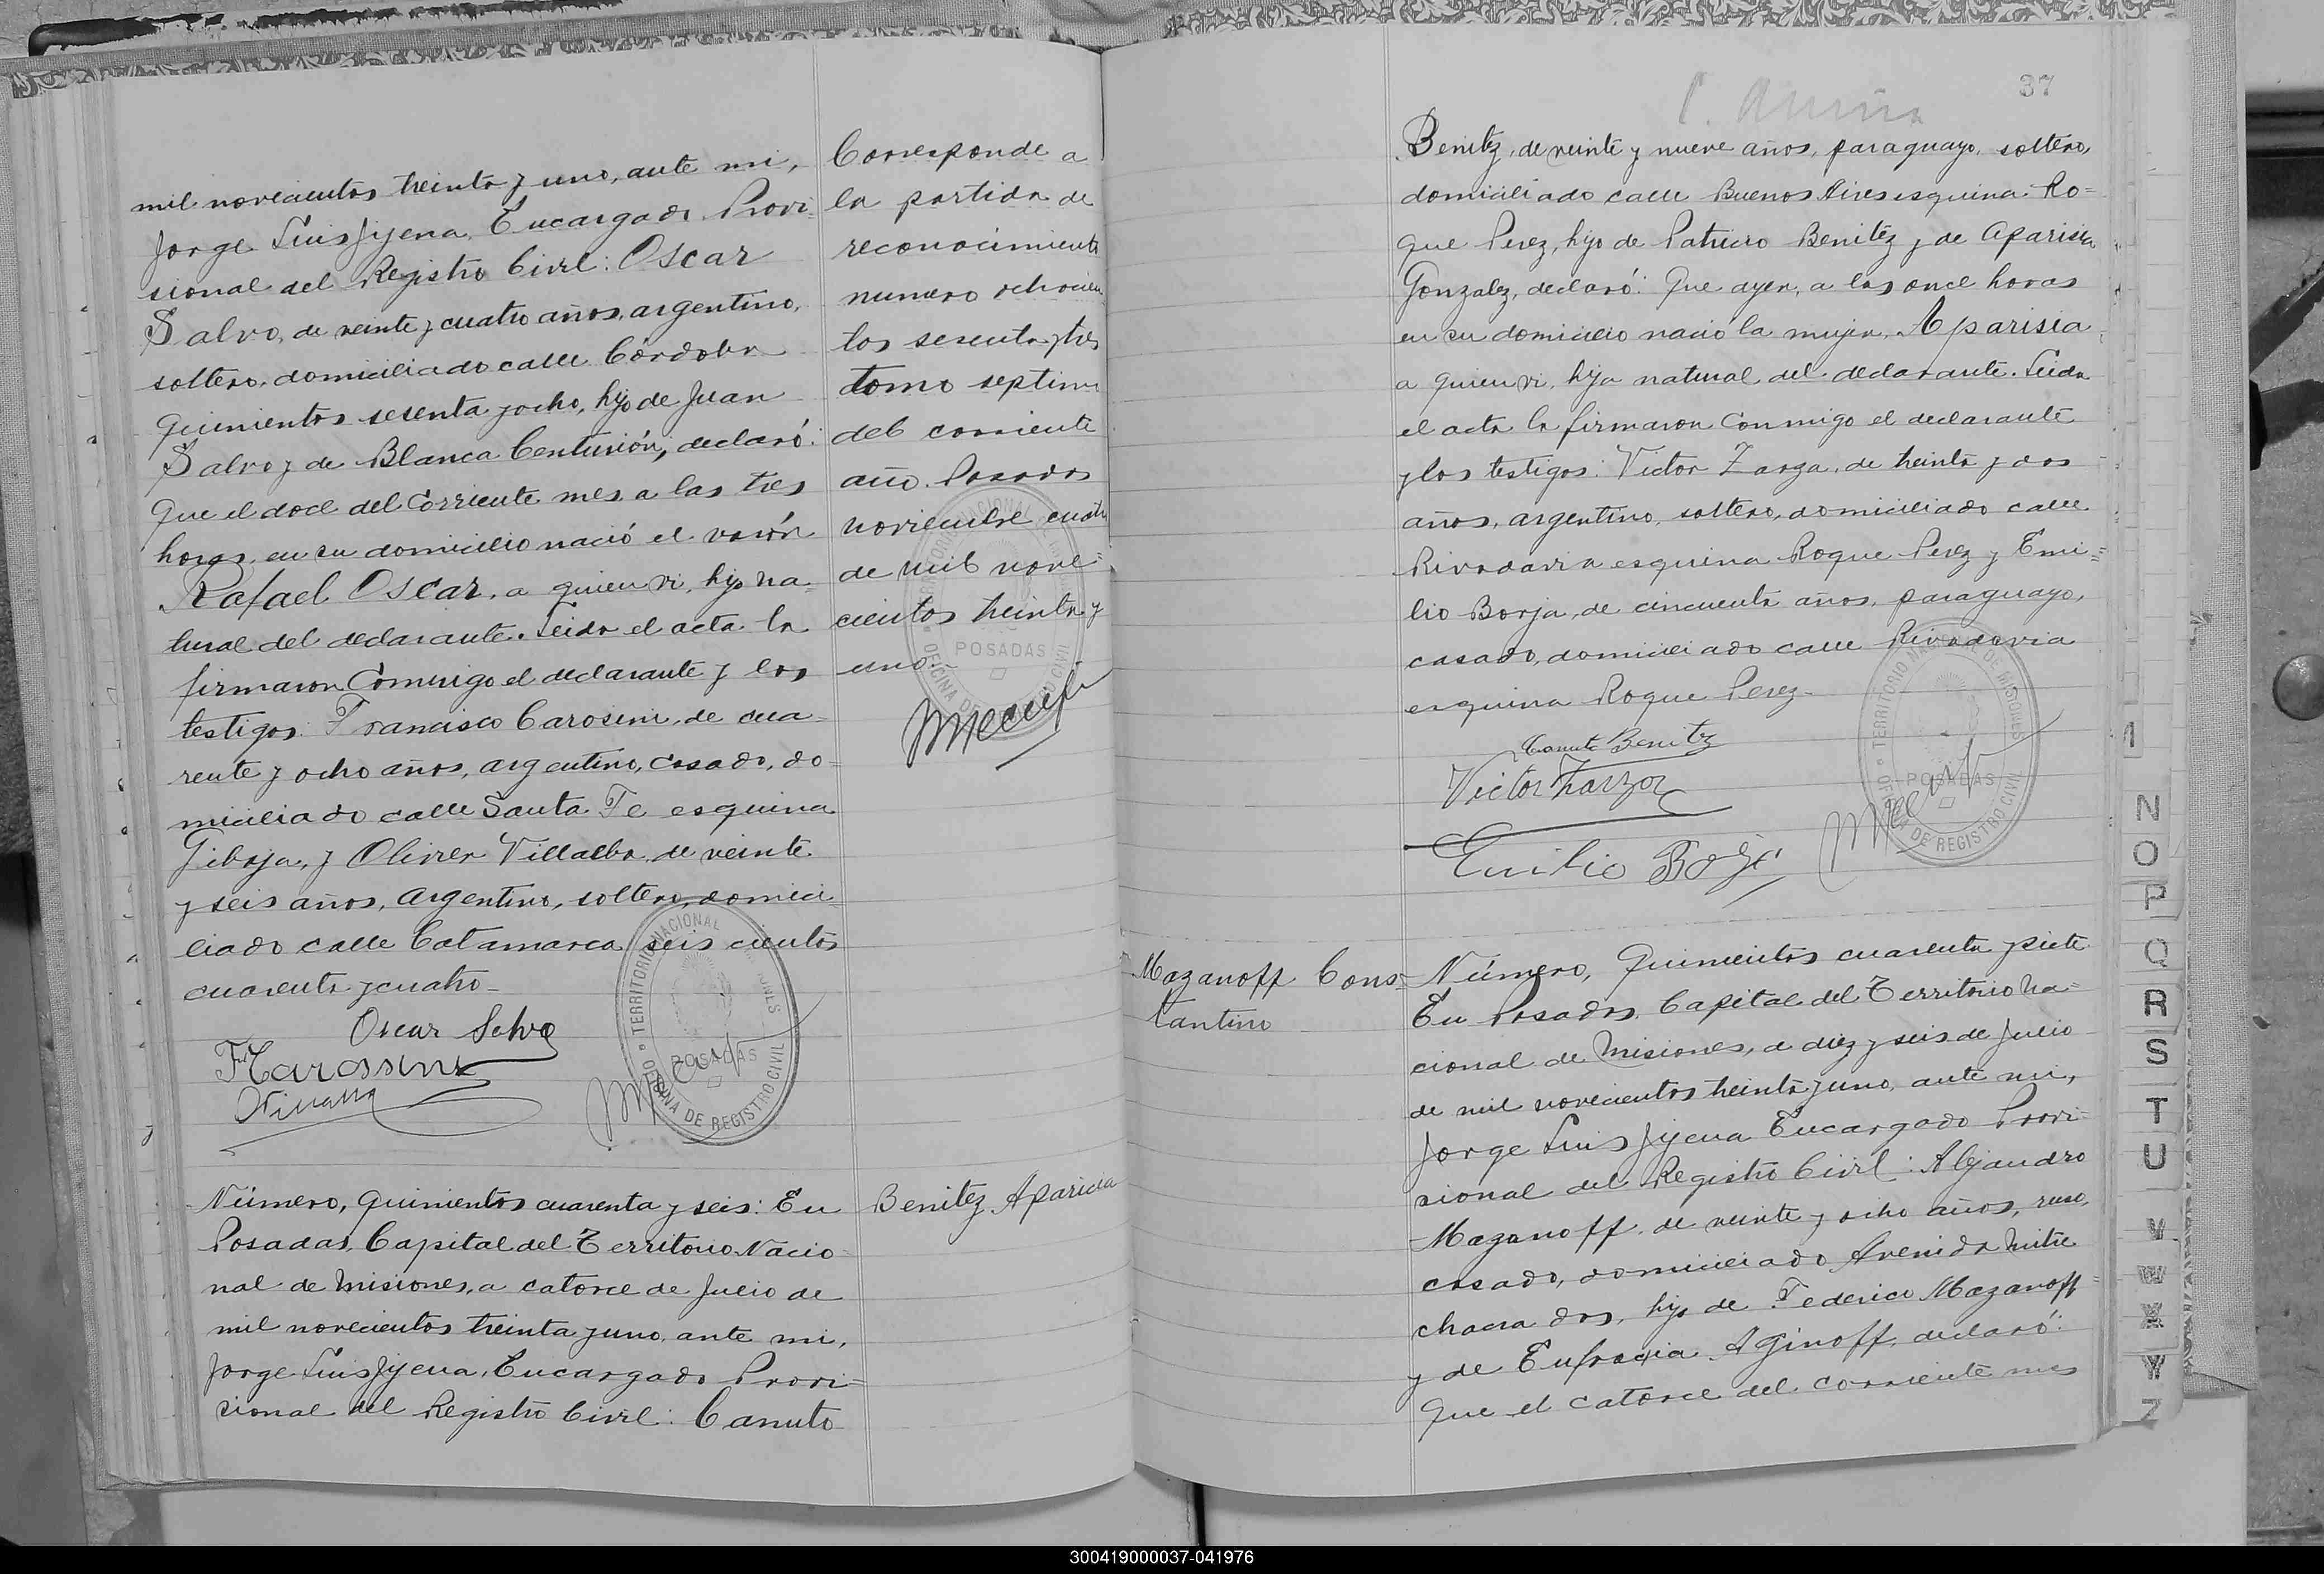 mil novecientos treinta y uno, ante mi,
Jorge Luis Jijena, Encargado Provi
sional del Registro Civil: Oscar
Salvo, de veinte y cuatro años, argentino,
soltero, domiciliado calle Córdoba
quinientos sesenta y ocho, hijo de Juan
Salvo y de Blanca Centurión, declaró:
Que el doce del corriente mes a las tres
horas, en su domicilio nació el varón
Rafael Oscar, a quien vi, hijo na=
tural del declarante. Leida el acta la
firmaron conmigo el declarante y los
testigos: Francisco Carosini, de cua
renta y ocho años, argentino, casado, do=
miciliado calle Santa Fe esquina
y Oliver Villalba, de veinte
y seis años, argentino, soltero, domici
liado calle Catamarca seis cientos
cuarenta y cuatro-
Oscar Salvo
F. Carossini
OVillalba
TERRITORIO NACIONAL DE MISIONES
POSADAS
OFICINA DE REGISTRO CIVIL
Número, quinientos cuarenta y seis: En
Posadas, Capital del Territorio Nacio
nal de Misiones, a catorce de Julio de
mil novecientos treinta y uno, ante mi,
Jorge Luis Jijena, Encargado Provi=
sional del Registro Civil: Canuto
Corresponde a
la partida de
reconocimiento
numero ochocien
tos sesenta y tres
tomo septimo
del corriente
año. Posadas
noviembre cuatro
de mil nove=
cientos treinta y
uno.-
TERRITORIO NACIONAL DE MISIONES
POSADAS
OFICINA DE REGISTRO CIVIL
Benitez Aparicia
37
Benitez, de veinte y nueve años, paraguayo, soltero,
domiciliado calle Buenos Aires esquina Ro=
que Perez, hijo de Patricio Benitez y de Aparisia
Gonzalez, declaró: Que ayer, a las once horas
en su domicilio nació la mujer, Aparisia
a quien vi, hija natural del declarante. Leida
el acta la firmaron conmigo el declarante
y los testigos: Victor Zarza, de treinta y dos
años, argentino, soltero, domiciliado calle
Rivadavia esquina Roque Perez y Emi=
lio Borja, de cincuenta años, paraguayo,
casado, domiciliado calle Rivadavia
esquina Roque Perez-
Canuto Benitz
Victor Zarza
Emilio Borja
TERRITORIO NACIONAL DE MISIONES
POSADAS
OFICINA DE REGISTRO CIVIL
Mazanoff Cons=
tantino
Número, quinientos cuarenta y siete
En Posadas, Capital del Territorio Na=
cional de Misiones, a diez y seis de Julio
de mil novecientos treinta y uno, ante mi,
Jorge Luis Jijena Encargado Provi=
sional del Registro Civil: Alejandro
Mazanoff, de veinte y ocho años, ruso,
casado, domiciliado Avenida Mitre
chacra dos, hijo de Federico Mazanoff
y de Eufracia Aginoff, declaró:
Que el catorce del corriente mes
M
N
O
P
Q
R
S
T
U
V
W
X
Y
Z
300419000037-041976